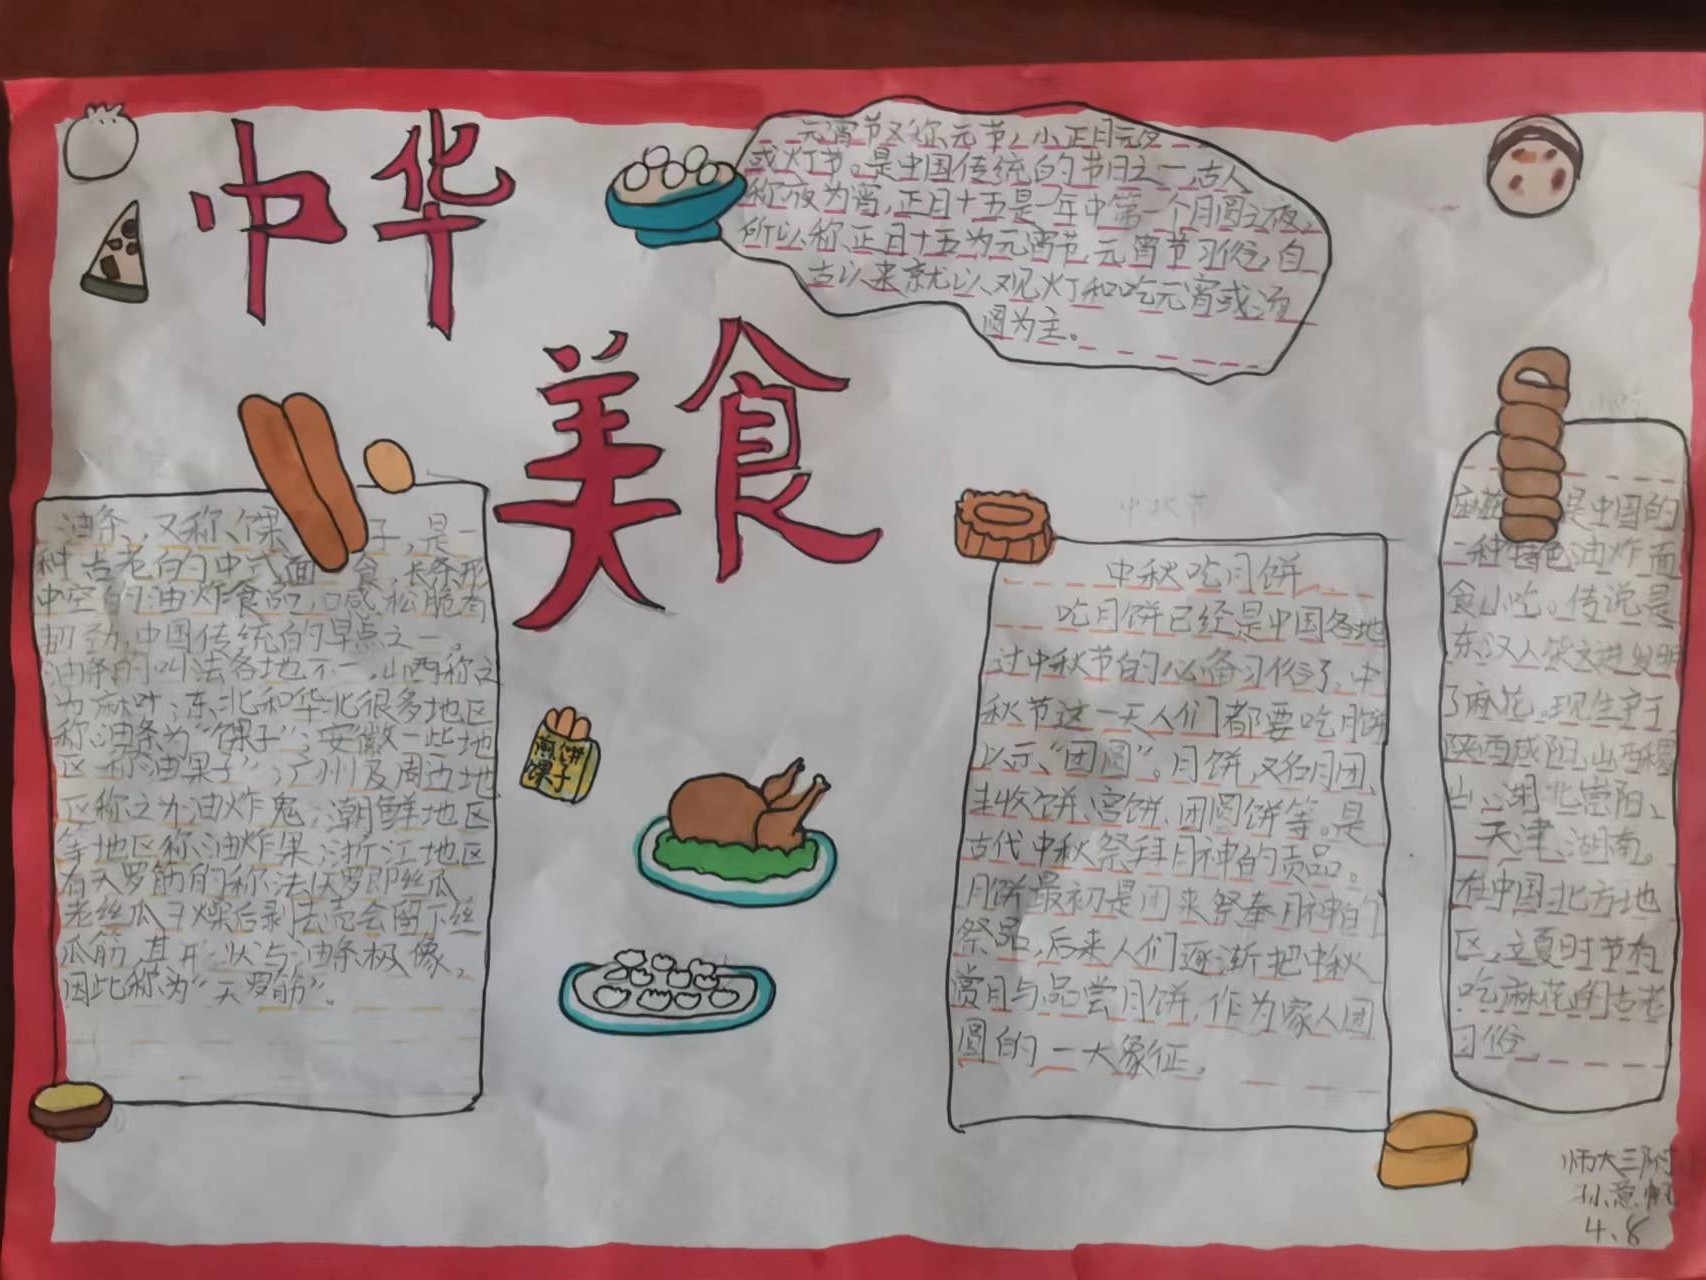 中华
美食
元宵节又称元节,小正月元夕
或灯节。是中国传统的节日之一,古人
称夜为宵,正月十五是一年中第一个月圆之夜,
所以称正月十五为元宵节,元宵节习俗,自
古以来就以观灯和吃元宵或汤
圆为主。
油条,又称馃子,是一
种古老的中式面食,长条形
中空的油炸食品,口感松脆有
韧劲,中国传统的早点之一。
油条的叫法各地不一,山西称之
为麻叶;东北和华北很多地区
称油条为“馃子”;安徽一些地
区称油果子”;广州及周边地
区称之为油炸鬼;潮鲜地区
等地区称油炸果;浙江地区
有天罗筋的称法(天罗即丝瓜
老丝瓜干燥后剥去壳会留下丝
瓜筋,其形状与油条极像,
因此称为“天罗筋”。
煎饼
馃子
中秋节
中秋吃月饼
吃月饼已经是中国各地
过中秋节的必备习俗了,中
秋节这一天人们都要吃月饼
以示“团圆”。月饼,又名月团、
丰收饼、宫饼、团圆饼等。是
古代中秋祭拜月神的贡品。
月饼最初是用来祭奉月神的
祭品,后来人们逐渐把中秋
赏月与品尝月饼,作为家人团
圆的一大象征。
小吃
麻花是中国的
一种特色油炸面
食小吃。传说是
东汉人柴文进发明
了麻花。现生产主
陕西咸阳,山西稷
山、湖北崇阳、
天津、湖南。
在中国北方地
区,立夏时节有
吃麻花的古老
习俗
师大三附
孙意帆
4.8